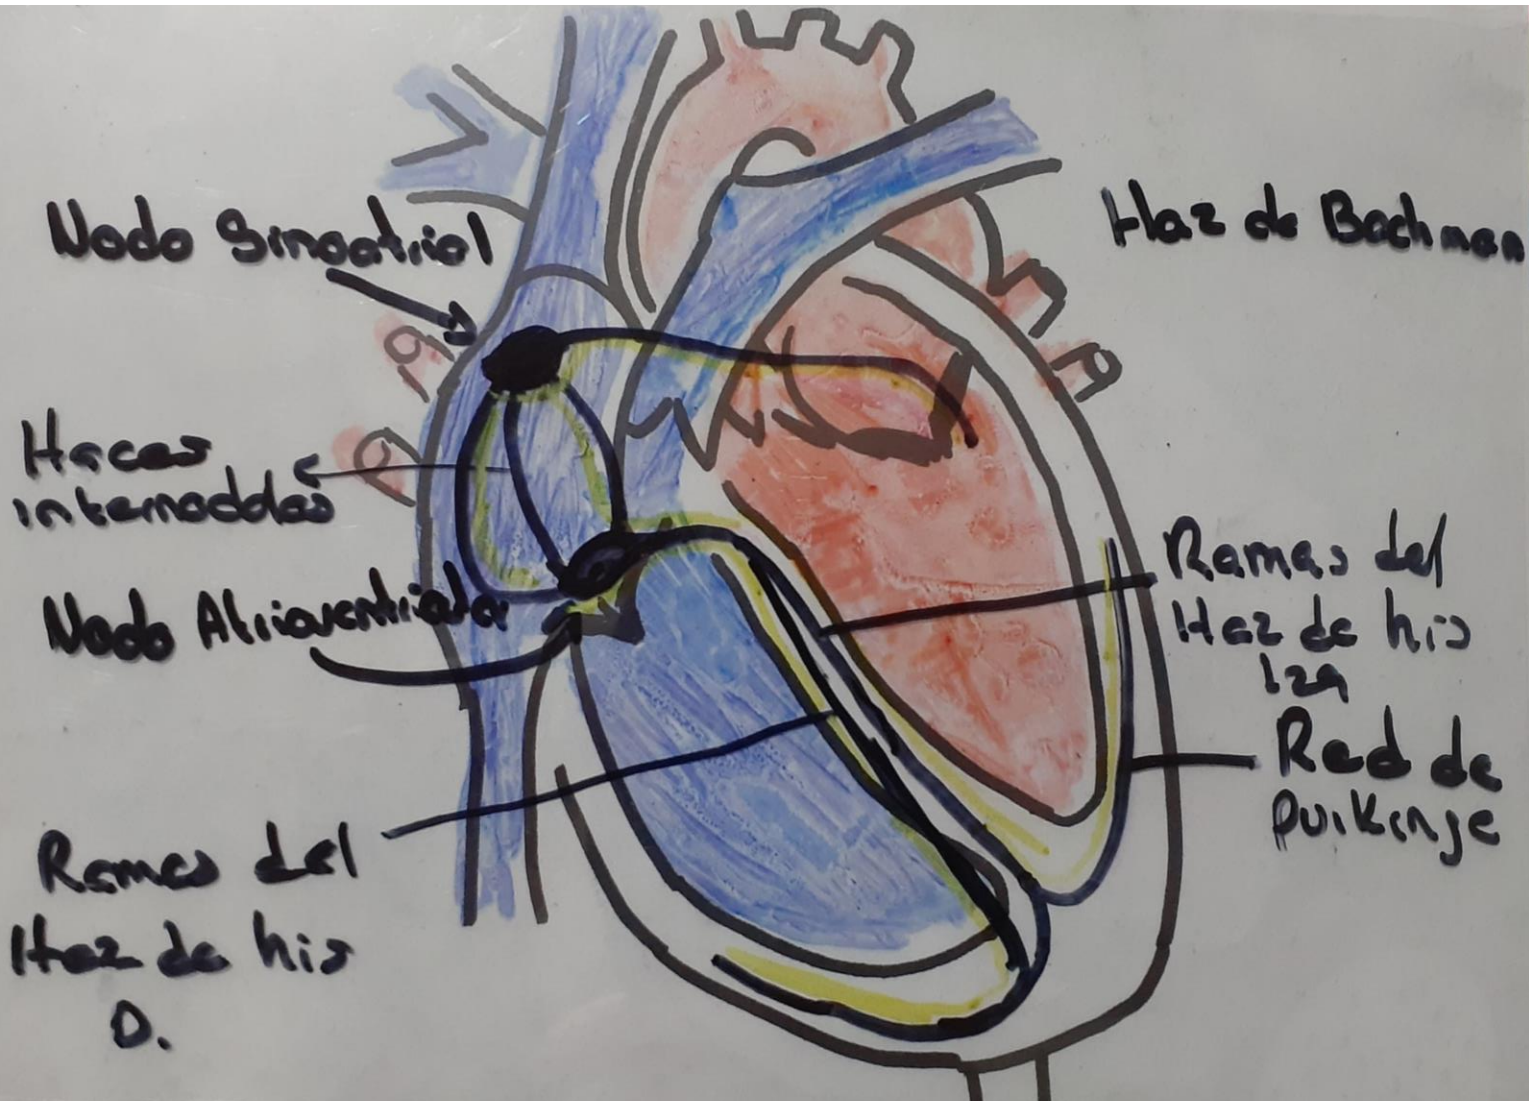 Nodo Sinoatrial
Haz de Bachman
Haces
internodales
Nodo Atrioventricular
Ramas del
Haz de his
Izq
Red de
Purkinje
Ramas del
Haz de his
D.